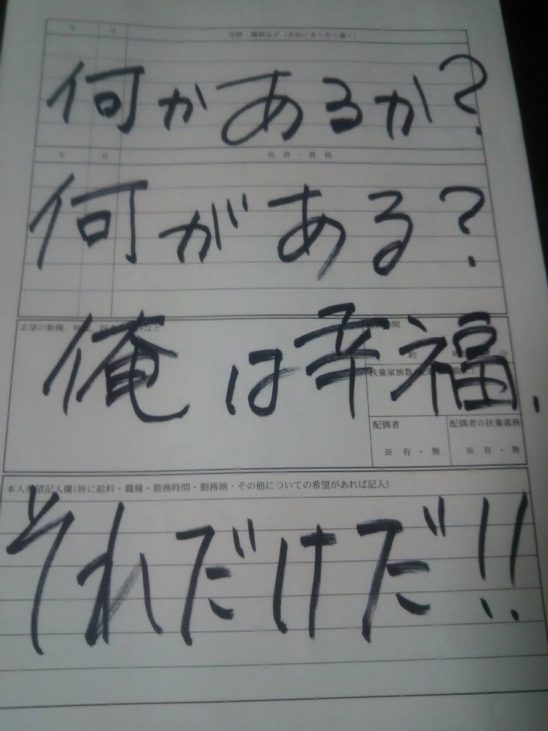 年 月 学歴・職歴など(各別にまとめて書く)
何かあるか?
年 月 免許・資格
何がある?
志望の動機、
俺は幸福.
扶養家族数
配偶者
配偶者の扶養義務
※有・無
※有・無
本人希望記入欄(特に給料・職種・勤務時間・勤務地・その他についての希望があれば記入)
それだけだ!!